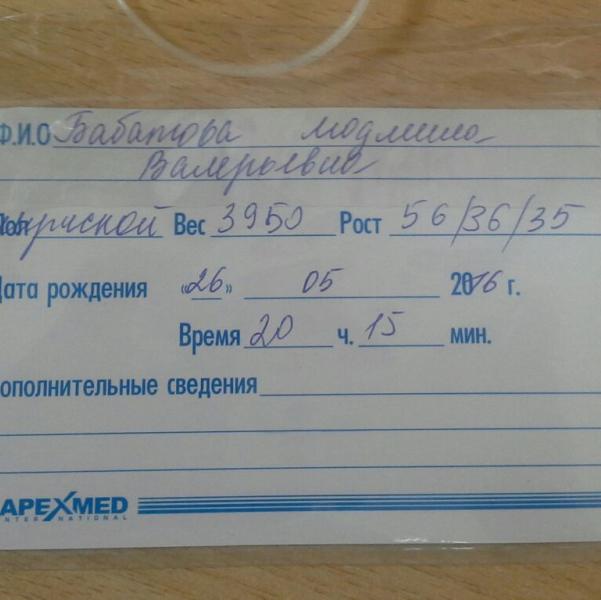 Ф.И.О Бабатова Людмила
Валерьевна
Пол мужской Вес 3950 Рост 56/36/35
Дата рождения «26» 05 2016 г.
Время 20 ч. 15 мин.
Дополнительные сведения
APEXMED
INTERNATIONAL